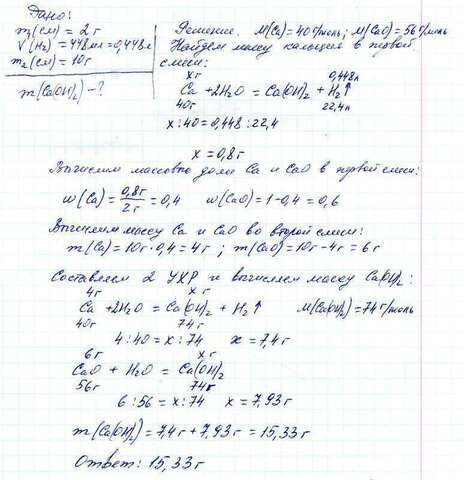 Дано:
m₁(см) = 2г
V(H₂) = 448мл = 0,448л
m₂(см) = 10г
m(Ca(OH)₂) - ?
Решение. M(Ca) = 40г/моль; M(CaO) = 56г/моль
Найдем массу кальция в первой
смеси:
xг 0,448л
Ca + 2H₂O = Ca(OH)₂ + H₂↑
40г 22,4л
x : 40 = 0,448 : 22,4
x = 0,8г
Вычислим массовые доли Ca и CaO в первой смеси:
w(Ca) = 0,8г/2г = 0,4 w(CaO) = 1-0,4 = 0,6
Вычислим массу Ca и CaO во второй смеси:
m(Ca) = 10г·0,4 = 4г; m(CaO) = 10г - 4г = 6г
Составляем 2 УХР и вычисляем массу Ca(OH)₂:
4г xг
Ca + 2H₂O = Ca(OH)₂ + H₂↑ M(Ca(OH)₂) = 74г/моль
40г 74г
4 : 40 = x : 74 x = 7,4г
6г xг
CaO + H₂O = Ca(OH)₂
56г 74г
6 : 56 = x : 74 x = 7,93г
m(Ca(OH)₂) = 7,4г + 7,93г = 15,33г
Ответ: 15,33г